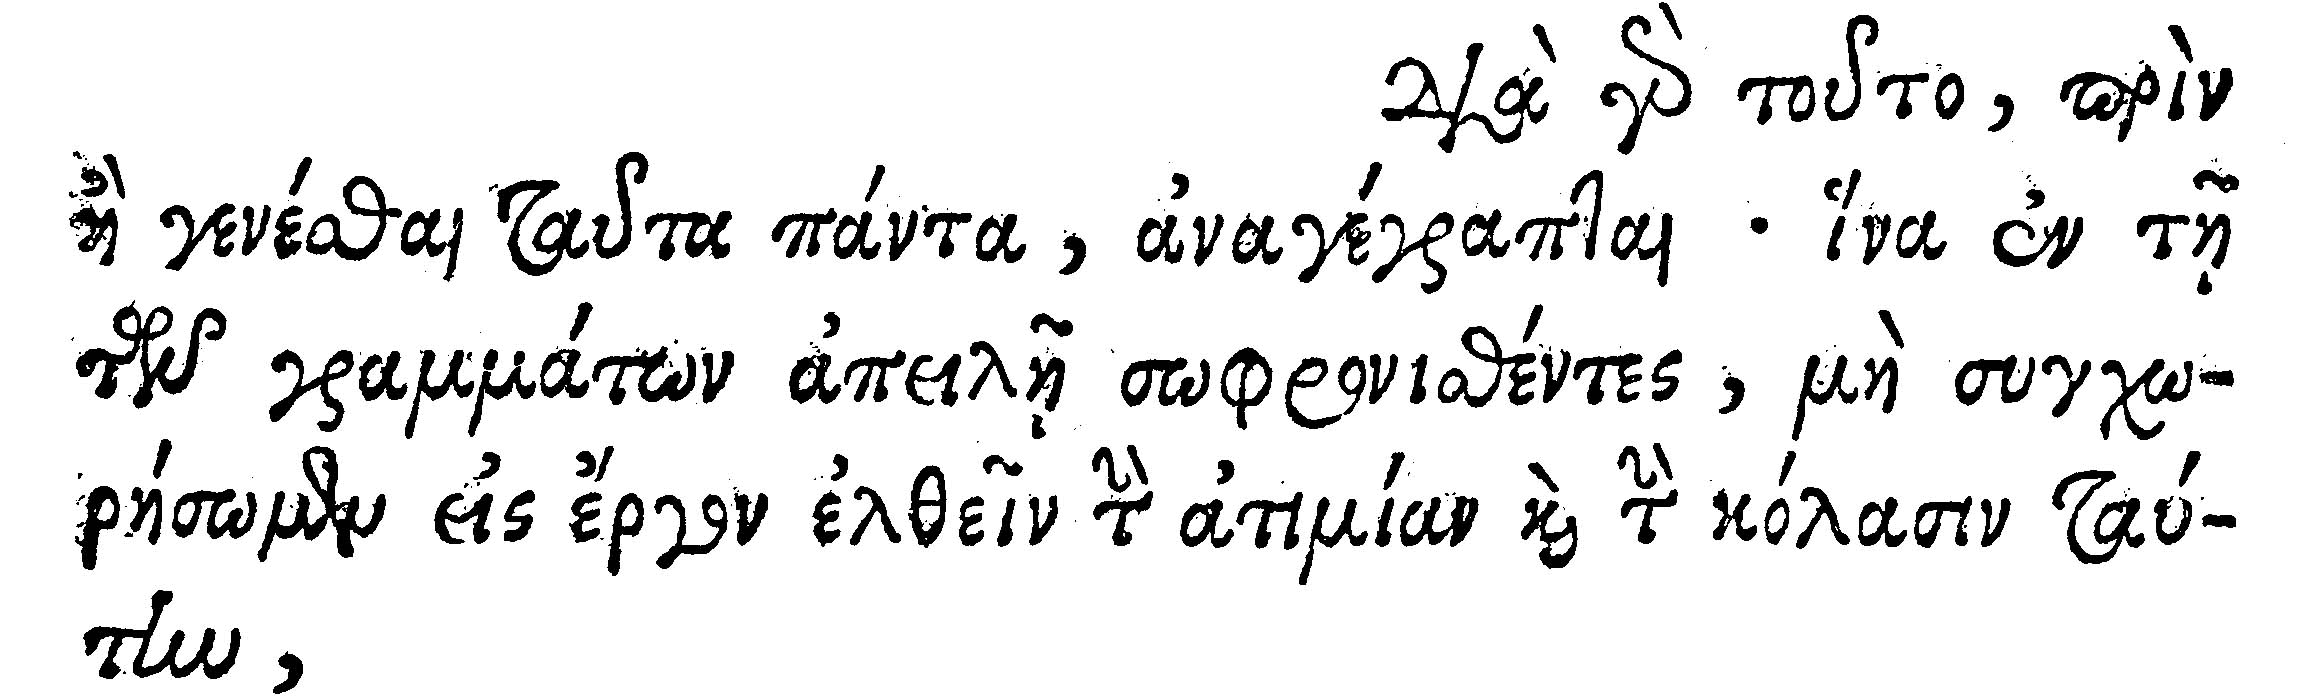 διὰ γὰρ τοῦτο, πρὶν
ἢ γενέσθαι ταῦτα πάντα, ἀναγέγραπται · ἵνα ἐν τῇ
τῶν γραμμάτων ἀπειλῇ σωφρονισθέντες, μὴ συγχω-
ρήσωμεν εἰς ἔργον ἐλθεῖν τὴν ἀτιμίαν καὶ τὴν κόλασιν ταύ-
την,